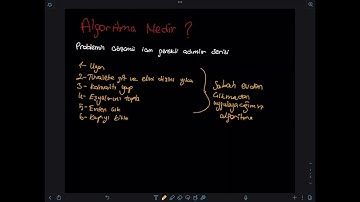 Algoritma Nedir ?
Problemin çözümü için gerekli adımlar serisi
1- Uyan
2- Tuvalete git ve elini yüzünü yıka
3- Kahvaltı yap
4- Eşyalarını topla
5- Evden çık
6- Kapıyı kitle
Sabah evden
çıkmadan
uygulayacağımız
algoritma